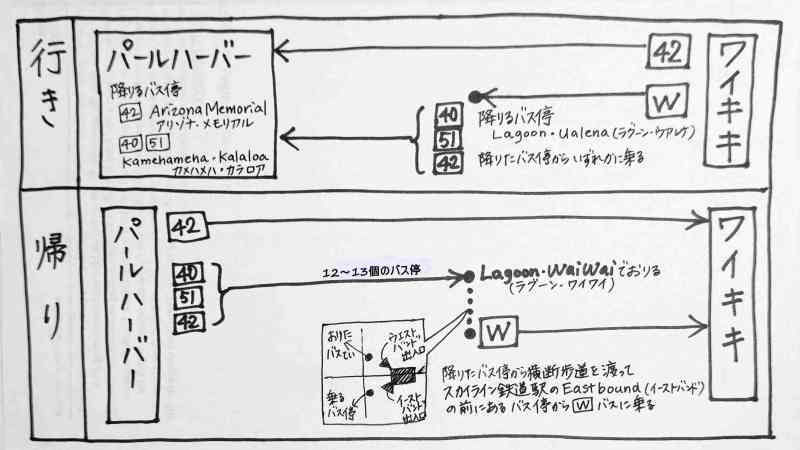 行き
パールハーバー
降りるバス停
42 Arizona Memorial
アリゾナ・メモリアル
40 51
Kamehameha・Kalaloa
カメハメハ・カラロア
42
W
ワイキキ
40
51
42
降りるバス停
Lagoon・Ualena(ラグーン・ウアレナ)
降りたバス停からいずれかに乗る
帰り
パールハーバー
42
40
51
42
12〜13個のバス停
Lagoon・WaiWaiでおりる
(ラグーン・ワイワイ)
W
ワイキキ
おりた
バスてい
ウエスト
バンド
出入口
乗る
バス停
イースト
バンド
出入口
降りたバス停から横断歩道を渡って
スカイライン鉄道駅のEastbound(イーストバンド)
の前にあるバス停からWバスに乗る